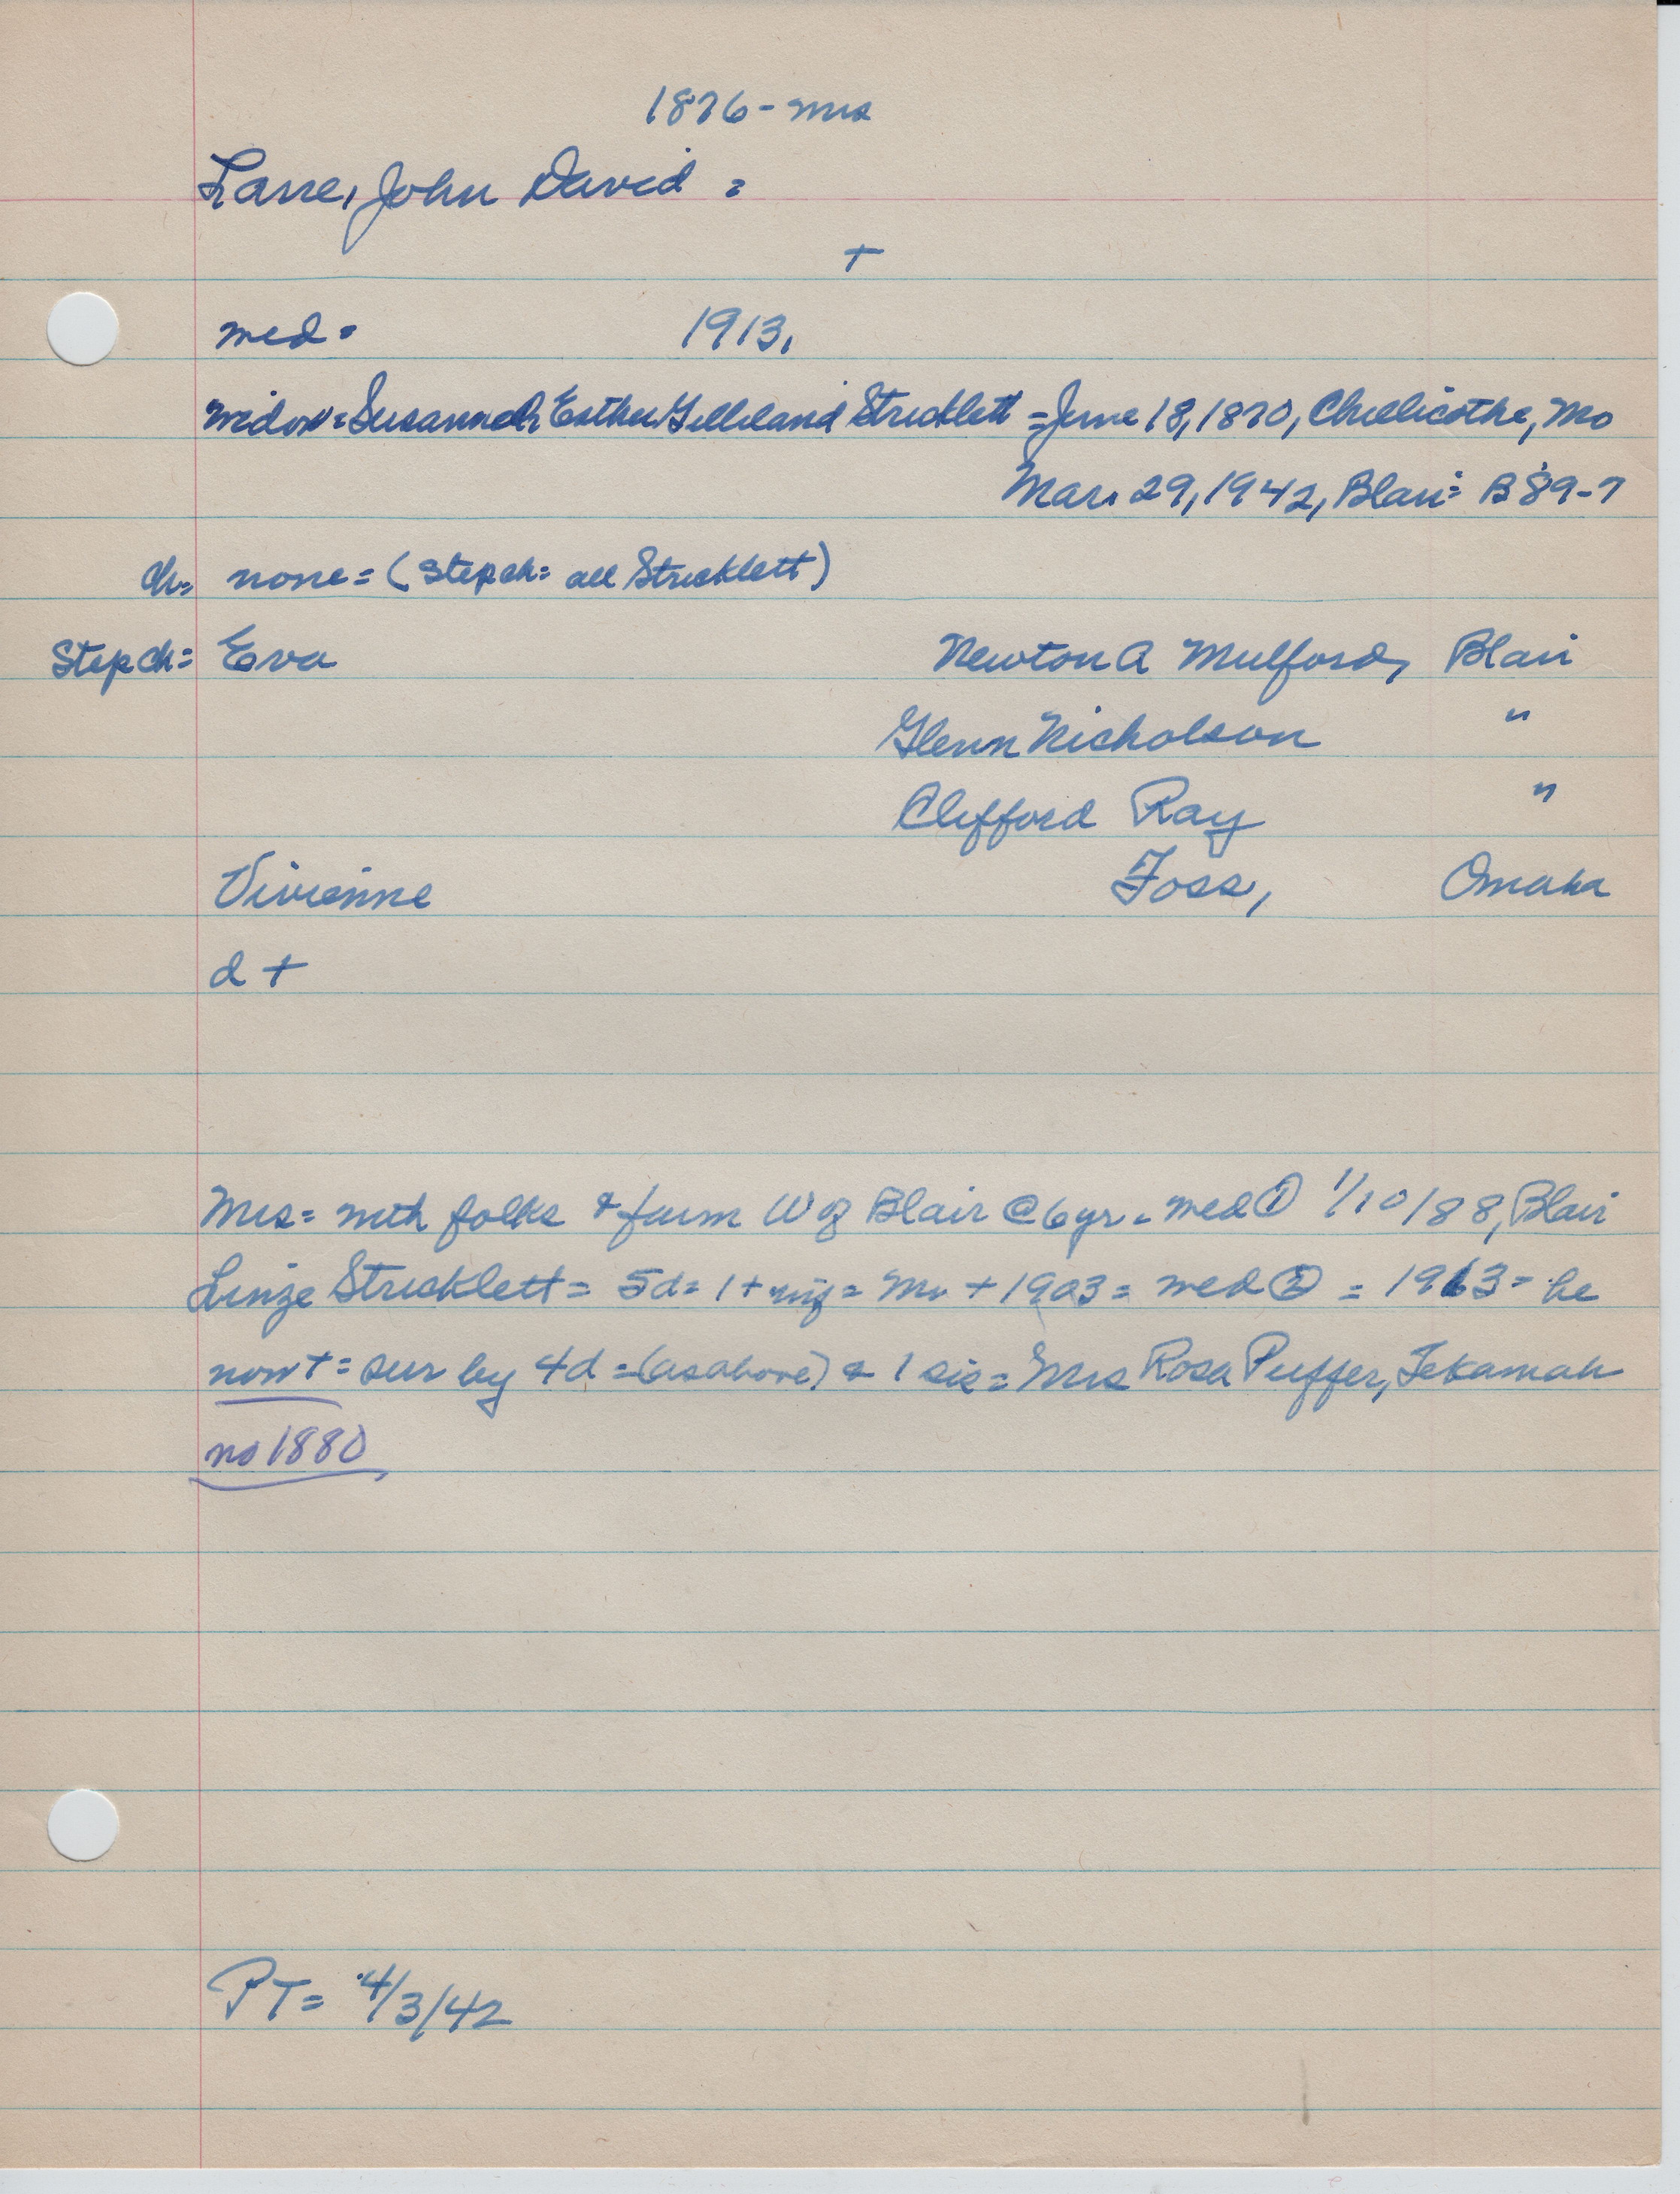 1876 - mrs
Lane, John David =
+
med = 1913,
widow = Susannah Esther Gilleland Stricklett = June 18, 1870, Chillicothe, Mo
Mar. 29, 1942, Blair = B 89-7
ch = none = (Step ch = all Stricklett)
Step ch = Eva Newton A Mulford, Blair
Glenn Nicholson "
Clifford Ray "
Vivienne Foss, Omaha
d +
Mrs = with folks & farm W of Blair @ 6 yr = med ① 1/10/88, Blair
Linze Stricklett = 5d = 1 + inf = Mr + 1903 = med ② = 1913 = he
now + = sur by 4d = (as above) & 1 sis = Mrs Rosa Puffer, Tekamah
no 1880
PT = 4/3/42